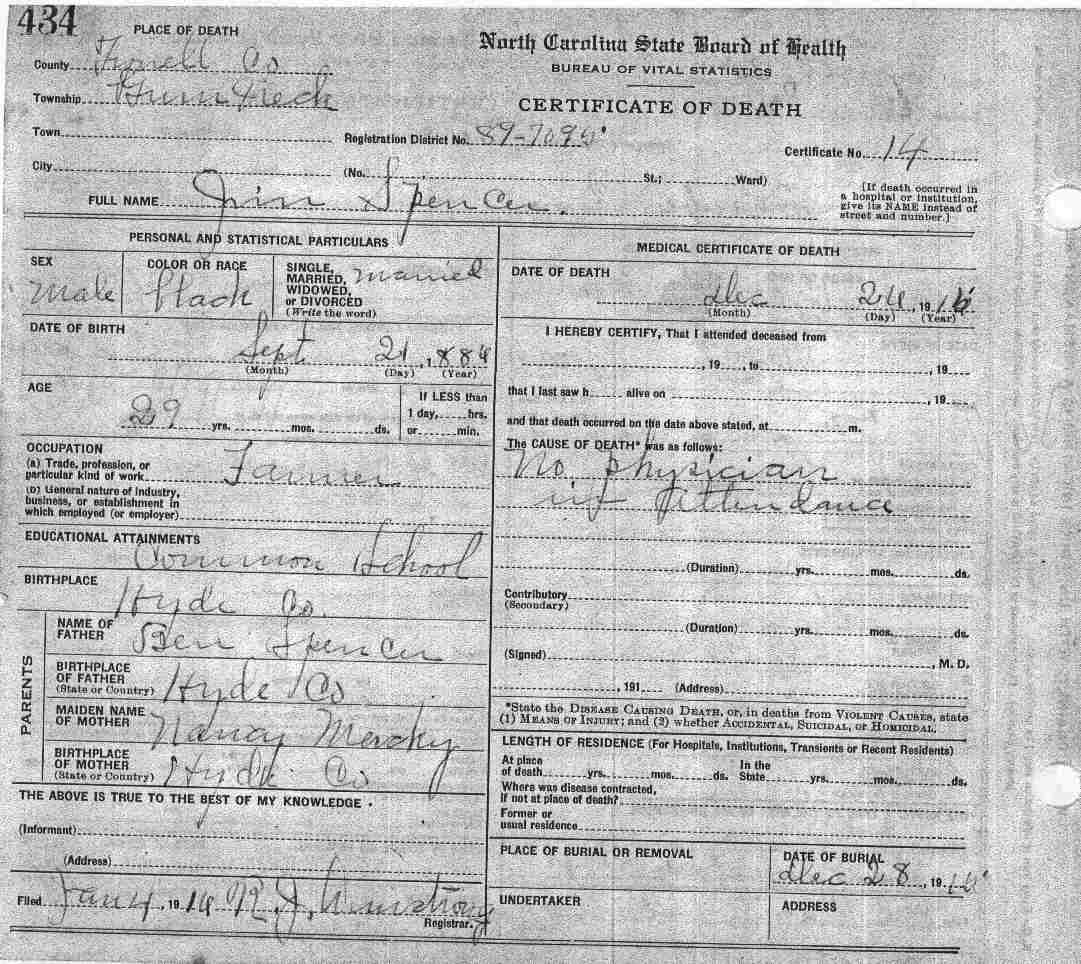 434
PLACE OF DEATH
North Carolina State Board of Health
BUREAU OF VITAL STATISTICS
CERTIFICATE OF DEATH
County Tyrrell Co
Township Gum Neck
Town
Registration District No. 89-7095
Certificate No. 14
City (No. St.; Ward)
[If death occurred in
a hospital or institution,
give its NAME instead of
street and number.]
FULL NAME Jim Spencer.
PERSONAL AND STATISTICAL PARTICULARS
SEX
Male
COLOR OR RACE
black
SINGLE,
MARRIED,
WIDOWED,
or DIVORCED
(Write the word)
married
DATE OF BIRTH
Sept 21, 1884
(Month) (Day) (Year)
AGE
29 yrs. mos. ds.
If LESS than
1 day, hrs.
or min.
OCCUPATION
(a) Trade, profession, or
particular kind of work Farmer
(b) General nature of industry,
business, or establishment in
which employed (or employer)
EDUCATIONAL ATTAINMENTS
Common School
BIRTHPLACE
Hyde Co.
PARENTS
NAME OF
FATHER
Ben Spencer
BIRTHPLACE
OF FATHER
(State or Country) Hyde Co
MAIDEN NAME
OF MOTHER
BIRTHPLACE
OF MOTHER
(State or Country) Hyde Co
THE ABOVE IS TRUE TO THE BEST OF MY KNOWLEDGE
(Informant)
(Address)
Filed Jan 4, 19 Armstrong
Registrar.
MEDICAL CERTIFICATE OF DEATH
DATE OF DEATH
Dec 24, 191
(Month) (Day) (Year)
I HEREBY CERTIFY, That I attended deceased from
, 19 , to , 19
that I last saw h alive on , 19
and that death occurred on the date above stated, at m.
The CAUSE OF DEATH* was as follows:
No physician
in attendance
(Duration) yrs. mos. ds.
Contributory
(Secondary)
(Duration) yrs. mos. ds.
(Signed) , M. D.
, 191 (Address)
*State the DISEASE CAUSING DEATH, or, in deaths from VIOLENT CAUSES, state
(1) MEANS OF INJURY; and (2) whether ACCIDENTAL, SUICIDAL, or HOMICIDAL.
LENGTH OF RESIDENCE (For Hospitals, Institutions, Transients or Recent Residents)
At place
of death yrs. mos. ds.
In the
State yrs. mos. ds.
Where was disease contracted,
if not at place of death?
Former or
usual residence
PLACE OF BURIAL OR REMOVAL
DATE OF BURIAL
Dec 28, 191
UNDERTAKER
ADDRESS